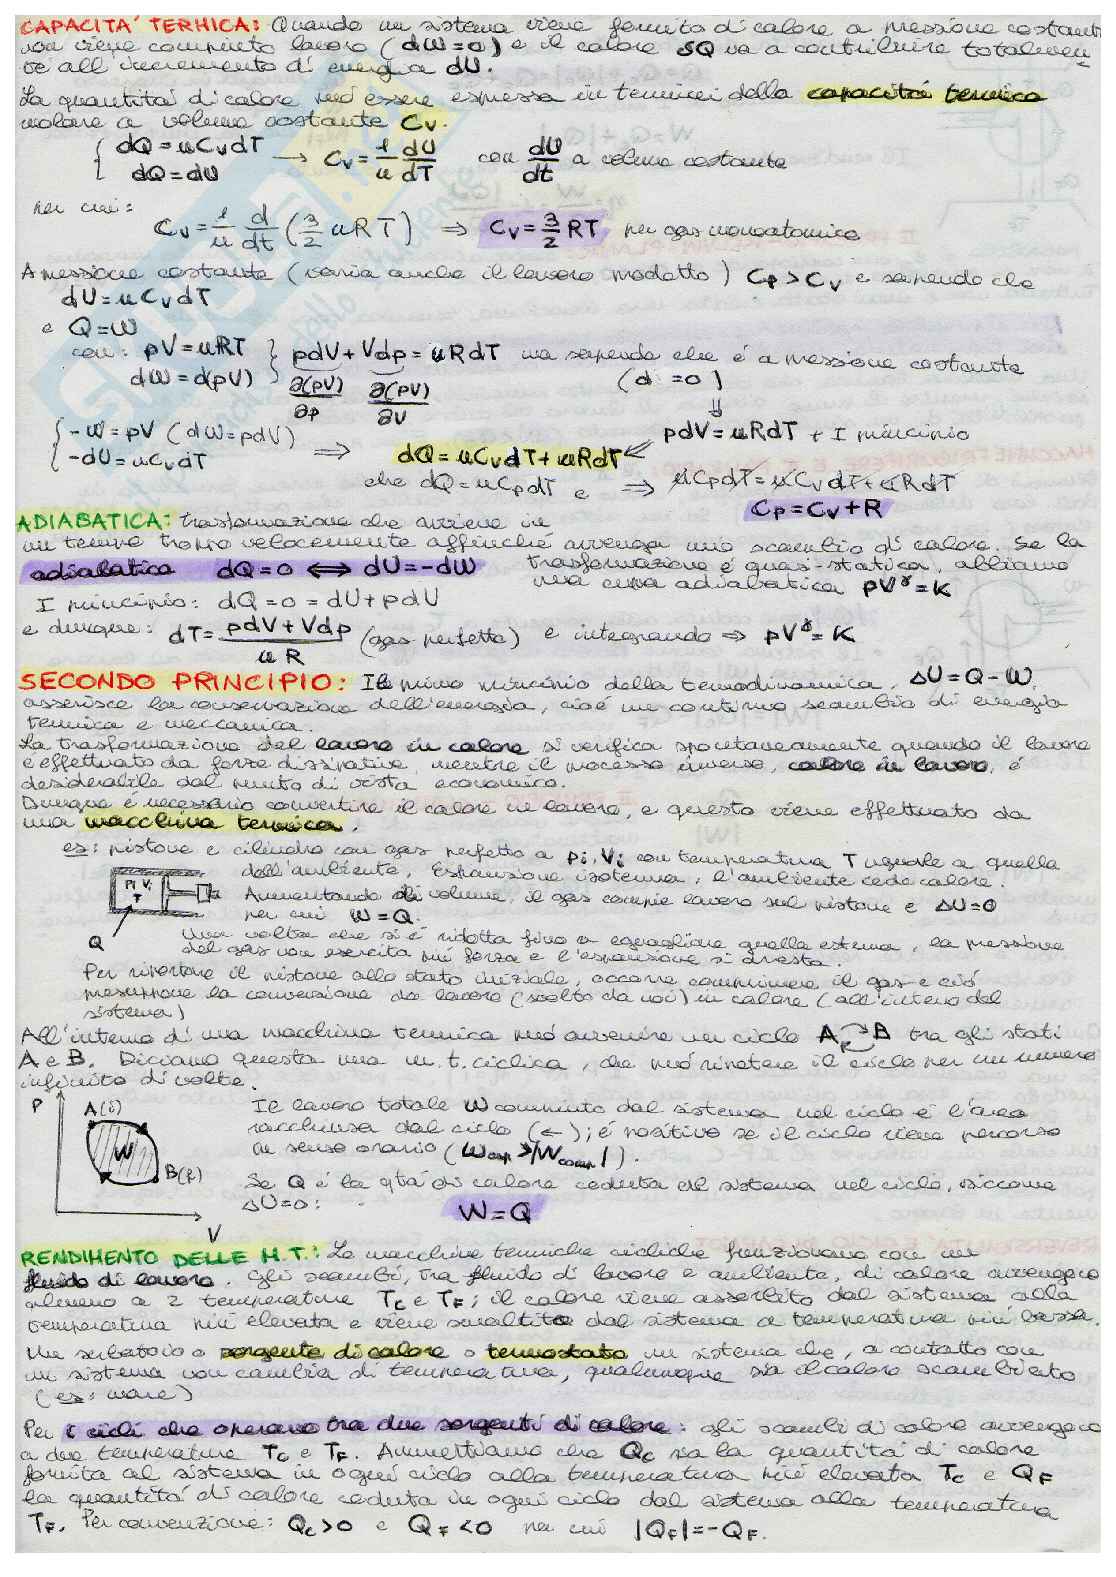 CAPACITÁ TERMICA: Quando un sistema viene fornito di calore a pressione costante
non viene compiuto lavoro (dW=0) e il calore δQ va a contribuire totalmen
te all'incremento di energia dU.
La quantitá di calore puó essere espressa in termini della capacitá termica
molare a volume costante Cv.
{ dQ=nCvdT
dQ=dU → Cv=1/n dU/dT con dU/dt a volume costante
per cui:
Cv=1/n d/dt (3/2 nRT) ⇒ Cv=3/2 RT per gas monoatomico
A pressione costante (varia anche il lavoro prodotto) Cp>Cv e sapendo che
dU=nCvdT
e Q=W
con: pV=nRT } pdV+Vdp=nRdT ma sapendo che é a pressione costante
dW=d(pV) ∂(pV)/∂p ∂(pV)/∂V (d =0)
⇓
{ -W=pV (dW=pdV) pdV=nRdT + I principio
-dU=nCvdT ⇒ dQ=nCvdT+nRdT
che dQ=nCpdT e ⇒ nCpdT=nCvdT+nRdT
Cp=Cv+R
ADIABATICA: trasformazione che avviene in
un tempo troppo velocemente affinché avvenga uno scambio di calore. Se la
adiabatica dQ=0 ⟺ dU=-dW trasformazione é quasi-statica, abbiamo
una curva adiabatica pV^γ=K
I principio: dQ=0=dU+pdU
e dunque: dT=pdV+Vdp/nR (gas perfetto) e integrando ⇒ pV^γ=K
SECONDO PRINCIPIO: Il primo principio della termodinamica, ΔU=Q-W,
asserisce la conservazione dell'energia, cioé un continuo scambio di energia
termica e meccanica.
La trasformazione del lavoro in calore si verifica spontaneamente quando il lavoro
é effettuato da forze dissipative, mentre il processo inverso, calore in lavoro, é
desiderabile dal punto di vista economico.
Dunque é necessario convertire il calore in lavoro, e questo viene effettuato da
una macchina termica.
es: pistone e cilindro con gas perfetto a pi,Vi con temperatura T uguale a quella
dell'ambiente. Espansione isoterma: l'ambiente cede calore.
Pi Vi
T
Aumentando di volume, il gas compie lavoro sul pistone e ΔU=0
per cui W=Q.
Q
Una volta che si é ridotta fino a eguagliare quella esterna, la pressione
del gas non esercita piú forza e l'espansione si arresta.
Per riportare il pistone allo stato iniziale, occorre comprimere il gas e ció
presuppone la conversione da lavoro (svolto da noi) in calore (all'interno del
sistema)
All'interno di una macchina termica puó avvenire un ciclo A B tra gli stati
A e B. Diciamo questa una m.t. ciclica, che puó ripetere il ciclo per un numero
infinito di volte.
P
A(i)
W
B(f)
V
Il lavoro totale W compiuto dal sistema nel ciclo é l'area
racchiusa dal ciclo (←); é positivo se il ciclo viene percorso
in senso orario (Wesp>|Wcomp|).
Se Q é la qtá di calore ceduta al sistema nel ciclo, siccome
ΔU=0:
W=Q
RENDIMENTO DELLE M.T.: Le macchine termiche cicliche funzionano con un
fluido di lavoro. Gli scambi, tra fluido di lavoro e ambiente, di calore avvengono
almeno a 2 temperature Tc e TF; il calore viene assorbito dal sistema alla
temperatura piú elevata e viene smaltito dal sistema a temperatura piú bassa.
Un serbatoio o sorgente di calore o termostato un sistema che, a contatto con
un sistema non cambia di temperatura, qualunque sia il calore scambiato
(es: mare)
Per i cicli che operano tra due sorgenti di calore: gli scambi di calore avvengono
a due temperature Tc e TF. Ammettiamo che Qc sia la quantitá di calore
fornita al sistema in ogni ciclo alla temperatura piú elevata Tc e QF
la quantitá di calore ceduta in ogni ciclo dal sistema alla temperatura
TF. Per convenzione: Qc>0 e QF<0 per cui |QF|=-QF.